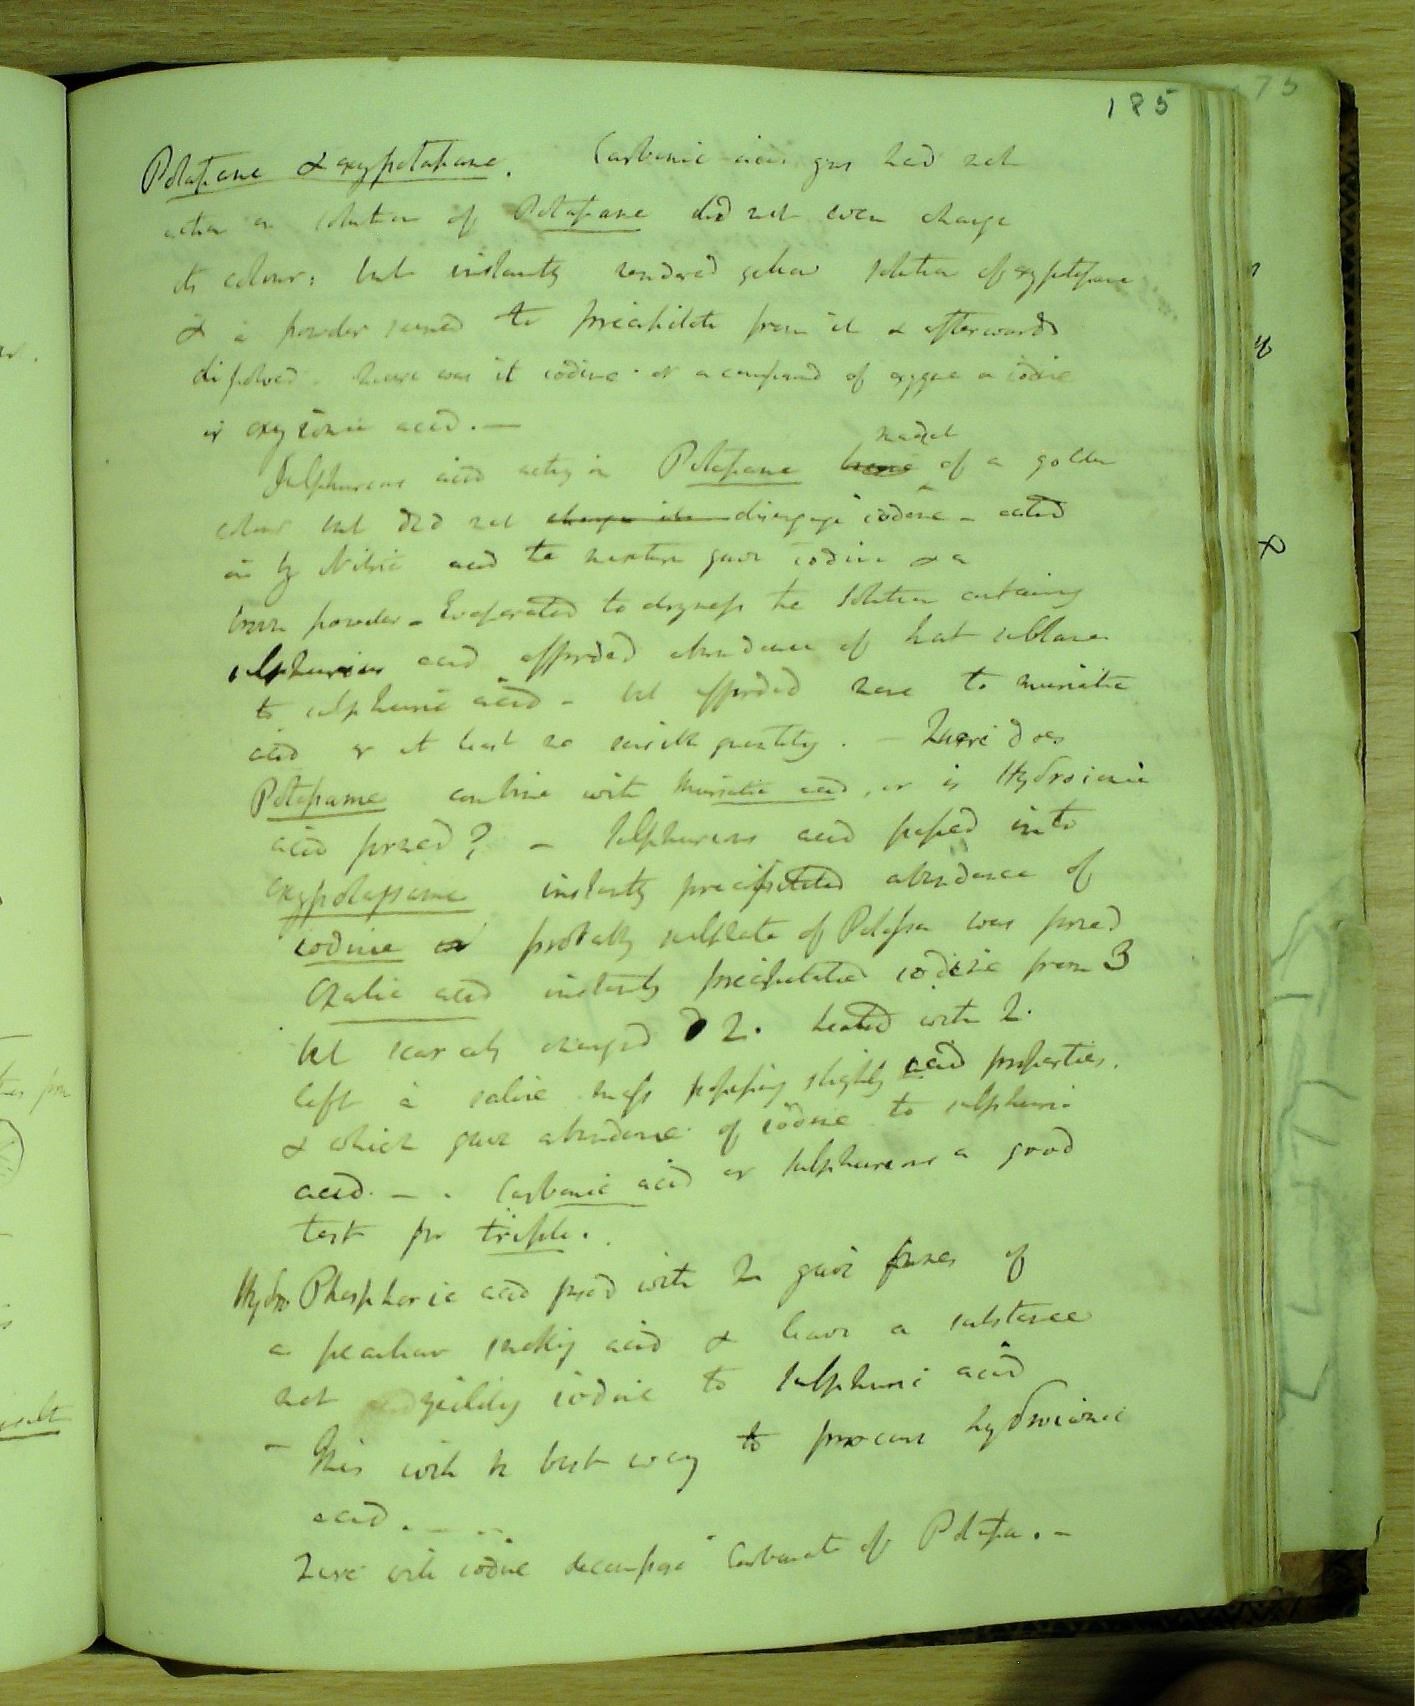 185
Potassane & oxypotassane. Carbonic acid gas had not
action on solution of Potassane did not even change
its colour; but instantly rendered yellow solution of oxypotassane
& a powder seemed to precipitate from it & afterwards
dissolved. Quere was it iodine or a compound of oxygene & iodine
or oxyionic acid. —
Sulphureous acid acting on Potassane made it of a golden
colour but did not change its disengage iodine - acted
on by Nitric acid the mixture gave iodine & a
brown powder - Evaporated to dryness the solution containing
sulphureous acid afforded abundance of that substance
to sulphuric acid - but afforded none to muriatic
acid or at least no sensible quantity. — Quere does
Potassame combine with Muriatic acid, or is Hydroionic
acid formed? — Sulphureous acid passed into
oxypotassame instantly precipitated abundance of
iodine & probably sulphate of Potassa was formed
Oxalic acid instantly precipitated iodine from 3
but scarcely changed 2. heated with 2.
left a saline mass possessing slightly acid properties.
& which gave abundance of iodine to sulphuric
acid. — . Carbonic acid or sulphureous a good
test for triple.
Hydro Phosphoric acid fused with 2 gave fumes of
a peculiar smoking acid & leave a substance
not yielding iodine to sulphuric acid
— This will be best way to procure hydroionic
acid. — —
Quere will iodine decompose Carbonate of Potassa. —